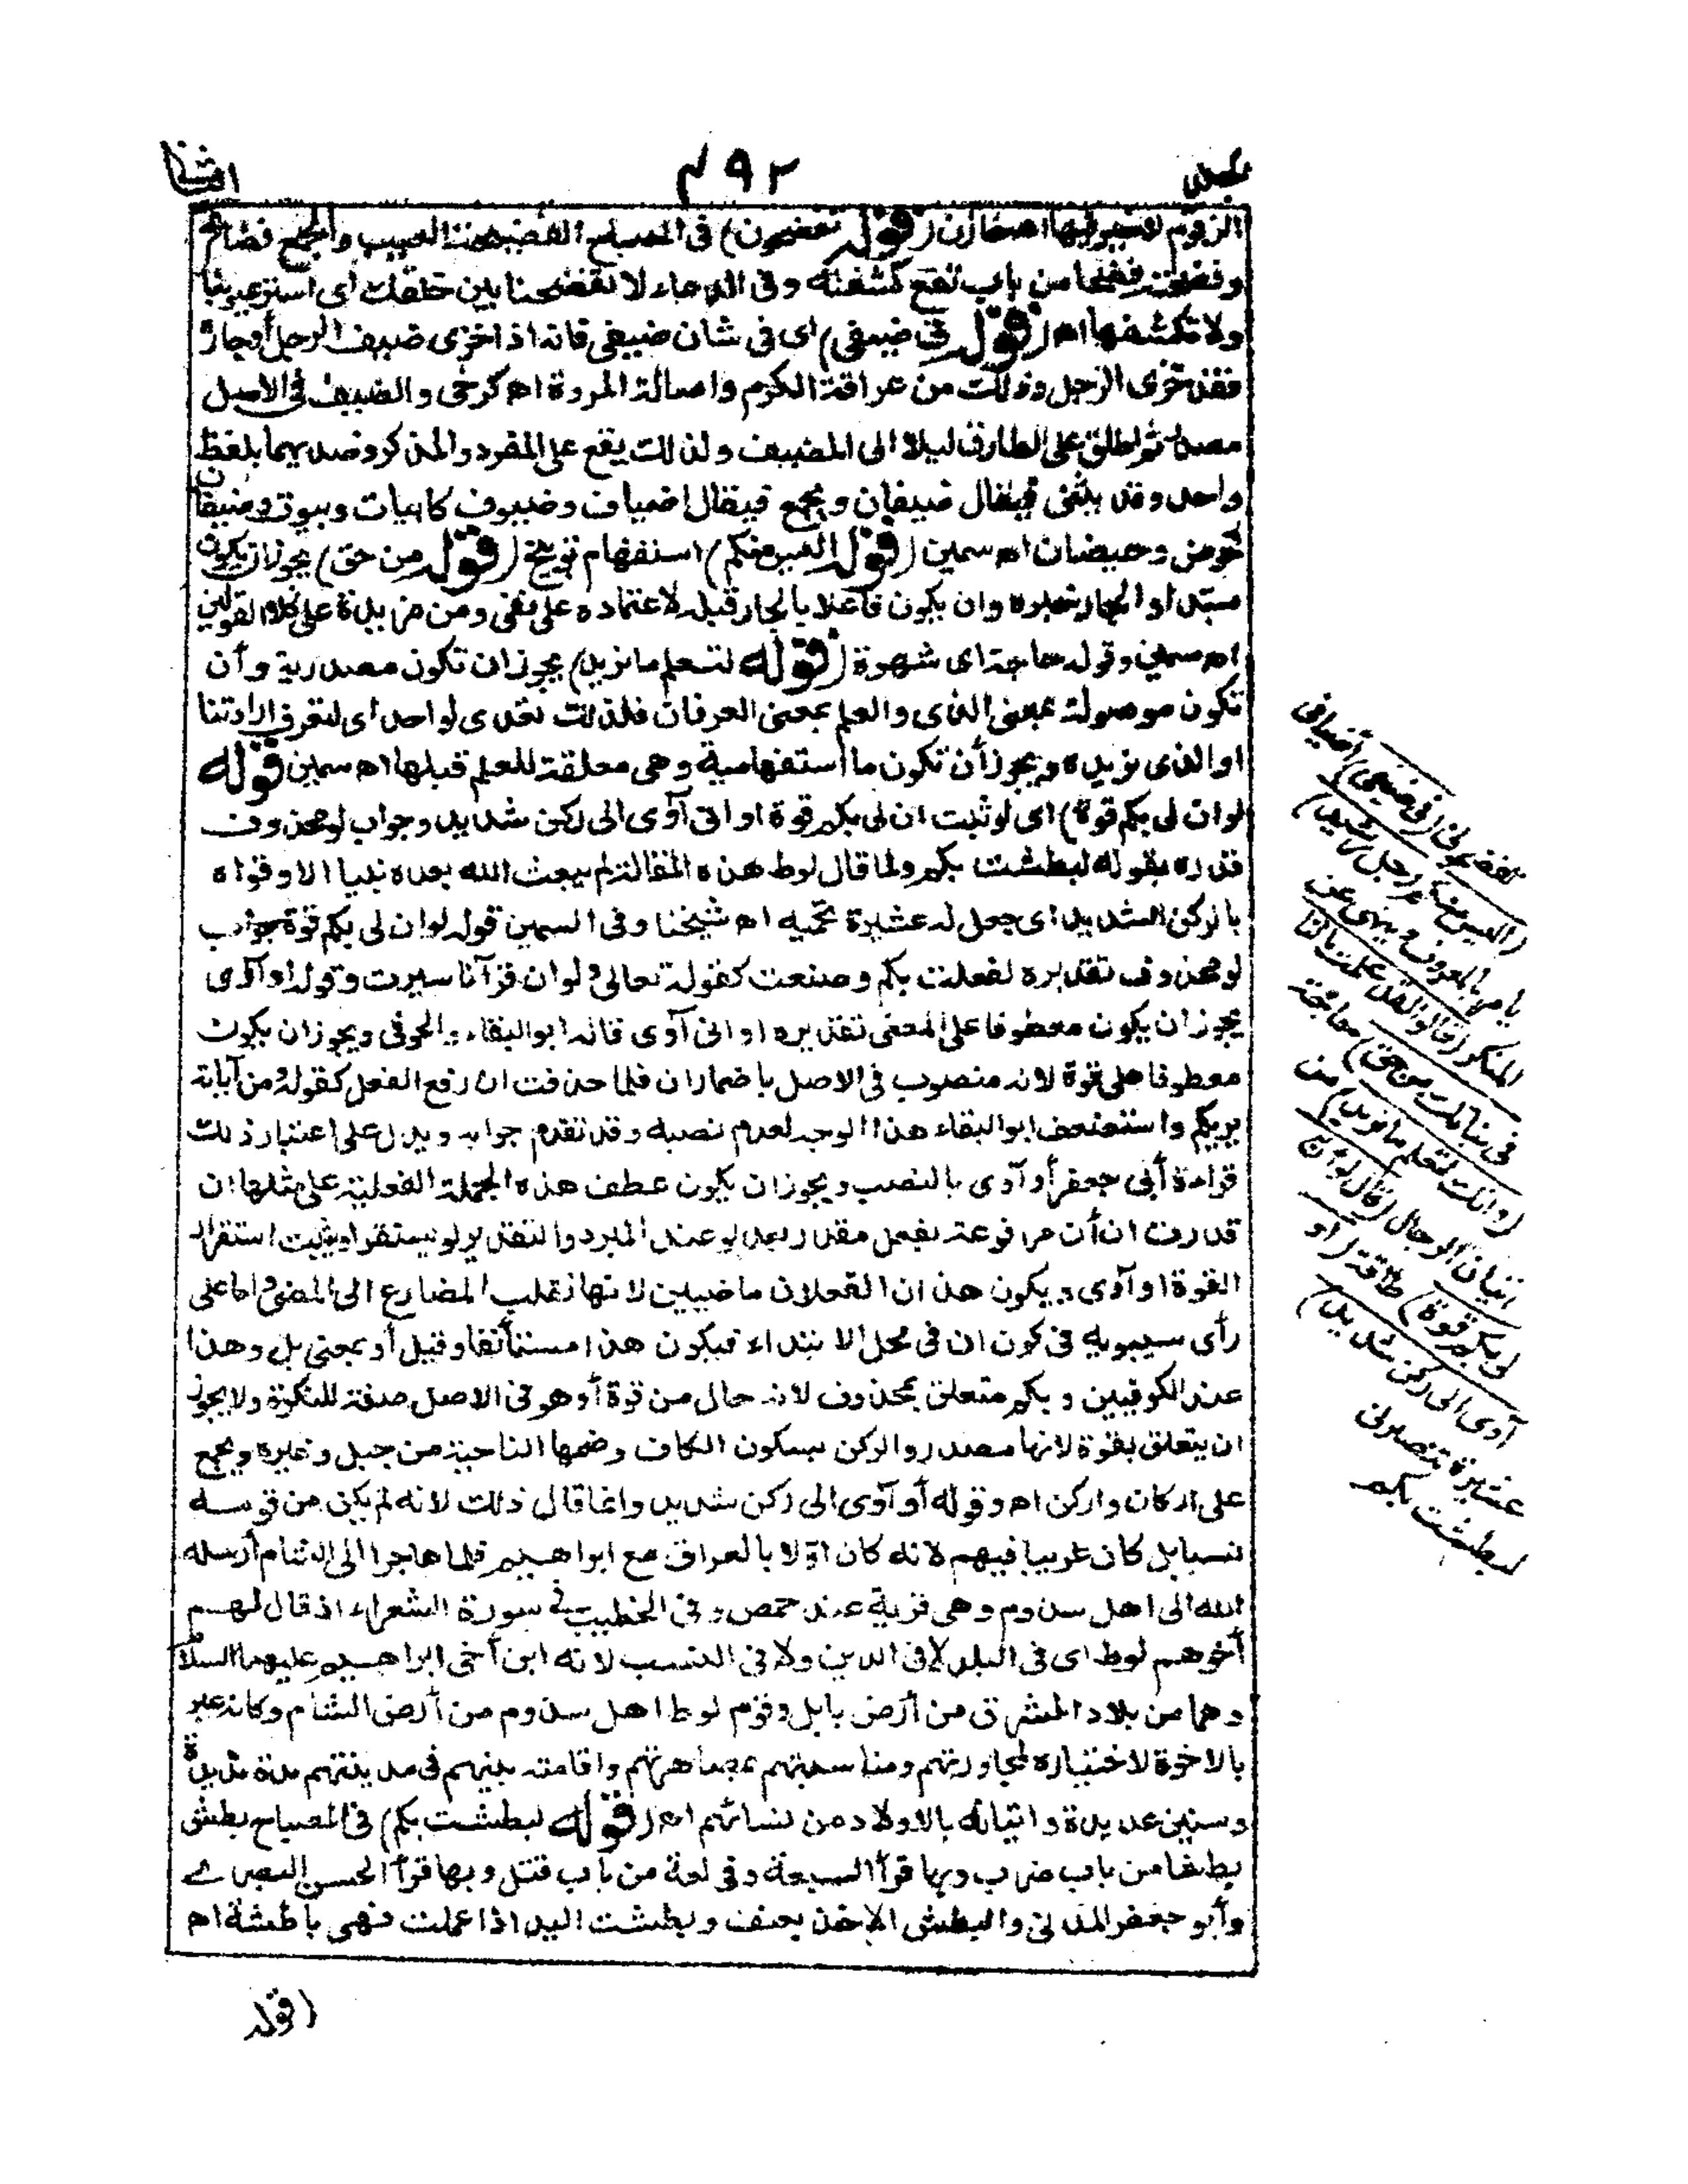 ٤٩٢
(قوله تفضحون) في المصباح الفضيحة العيب والجمع فضائح
وفضحته فضحا من باب نفع كشفته وفي الدعاء لا تفضحنا بين خلقك اى استر عيوبنا
ولا تكشفها اه (قوله في ضيفى) اى في شان ضيفى فانه اذا خزى ضيف الرجل أو جاره
فقد خزى الرجل وذلك من عراقة الكرم واصالة المروة اه كرخى والضيف في الاصل
مصدر ثم اطلق على الطارق ليلا الى المضيف ولذلك يقع على المفرد والمذكر وضديهما بلفظ
واحد وقد يثنى فيقال ضيفان ويجمع فيقال اضياف وضيوف كابيات وبيوت وضيفان
كحوض وحيضان اه سمين (قوله اليس منكم) استفهام توبيخ (قوله من حق) يجوز ان يكون
مبتدا والجار خبره وان يكون فاعلا بالجار قبله لاعتماده على نفى ومن مزيدة على كلا القولين
اه سمين وقوله حاجة اى شهوة (قوله لتعلم ما نريد) يجوز ان تكون مصدرية وأن
تكون موصولة بمعنى الذى والعلم بمعنى العرفان فلذلك تعدى لواحد اى لتعرف ارادتنا
او الذى نريده ويجوز أن تكون ما استفهامية وهى معلقة للعلم قبلها اه سمين (قوله
لو ان لى بكم قوة) اى لو ثبت ان لى بكم قوة او انى آوى الى ركن شديد وجواب لو محذوف
قدره بقوله لبطشت بكم ولما قال لوط هذه المقالة لم يبعث الله بعده نبيا الا وقواه
بالركن الشديد اى جعل له عشيرة تحميه اه شيخنا وفى السمين قوله لو ان لى بكم قوة جواب
لو محذوف تقديره لفعلت بكم وصنعت كقوله تعالى ولو ان قرآنا سيرت وقوله او آوى
يجوز ان يكون معطوفا على المعنى تقديره او انى آوى قاله ابو البقاء والحوفى ويجوز ان يكون
معطوفا على قوة لانه منصوب في الاصل باضمار ان فلما حذفت ان رفع الفعل كقوله ومن آياته
يريكم واستضعف ابو البقاء هذا الوجه لعدم نصبه وقد تقدم جوابه ويدل على اعتبار ذلك
قراءة أبى جعفر أو آوى بالنصب ويجوز ان يكون عطف هذه الجملة الفعلية على مثلها ان
قدرت ان أن مرفوعة بفعل مقدر بعد لو عند المبرد والتقدير لو يستقر او يثبت استقرار
القوة او آوى ويكون هذان الفعلان ماضيين لانها تقلب المضارع الى المضى واما على
رأى سيبويه فى كون ان فى محل الابتداء فيكون هذا مستأنفا وقيل أو بمعنى بل وهذا
عند الكوفيين وبكم متعلق بمحذوف لانه حال من قوة أو هو فى الاصل صفة للنكرة ولا يجوز
ان يتعلق بقوة لانها مصدر والركن بسكون الكاف وضمها الناحية من جبل وغيره ويجمع
على اركان واركن اه وقوله أو آوى الى ركن شديد وانما قال ذلك لانه لم يكن من قومه
نسبا بل كان غريبا فيهم لانه كان اولا بالعراق مع ابراهيم فلما هاجرا الى الشام أرسله
الله الى اهل سدوم وهى قرية عند حمص وفى الخطيب فى سورة الشعراء اذ قال لهم
أخوهم لوط اى فى البلد لا فى الدين ولا فى النسب لانه ابن أخى ابراهيم عليهما السلام
وهما من بلاد المشرق من أرض بابل وقوم لوط اهل سدوم من أرض الشام وكانه عبر
بالاخوة لاختياره لمجاورتهم ومناسبتهم بمصاهرتهم واقامته بينهم فى مدينتهم مدة مديدة
وسنين عديدة واتيانه بالاولاد من نسائهم اه (قوله لبطشت بكم) فى المصباح بطش
بطشا من باب ضرب وبها قرأ السبعة وفى لغة من باب قتل وبها قرأ الحسن البصرى
وأبو جعفر المدنى والبطش الاخذ بعنف وبطشت اليد اذا عملت فهى باطشة اه
(قوله
تفضحونى (فى ضيفى) اضيافى
(اليس منكم رجل رشيد)
يامر بالمعروف وينهى عن
المنكر (قالوا لقد علمت ما لنا
فى بناتك من حق) حاجة
(وانك لتعلم ما نريد) من
اتيان الرجال (قال لو ان
لى بكم قوة) طاقة (او
آوى الى ركن شديد)
عشيرة تنصرنى
لبطشت بكم